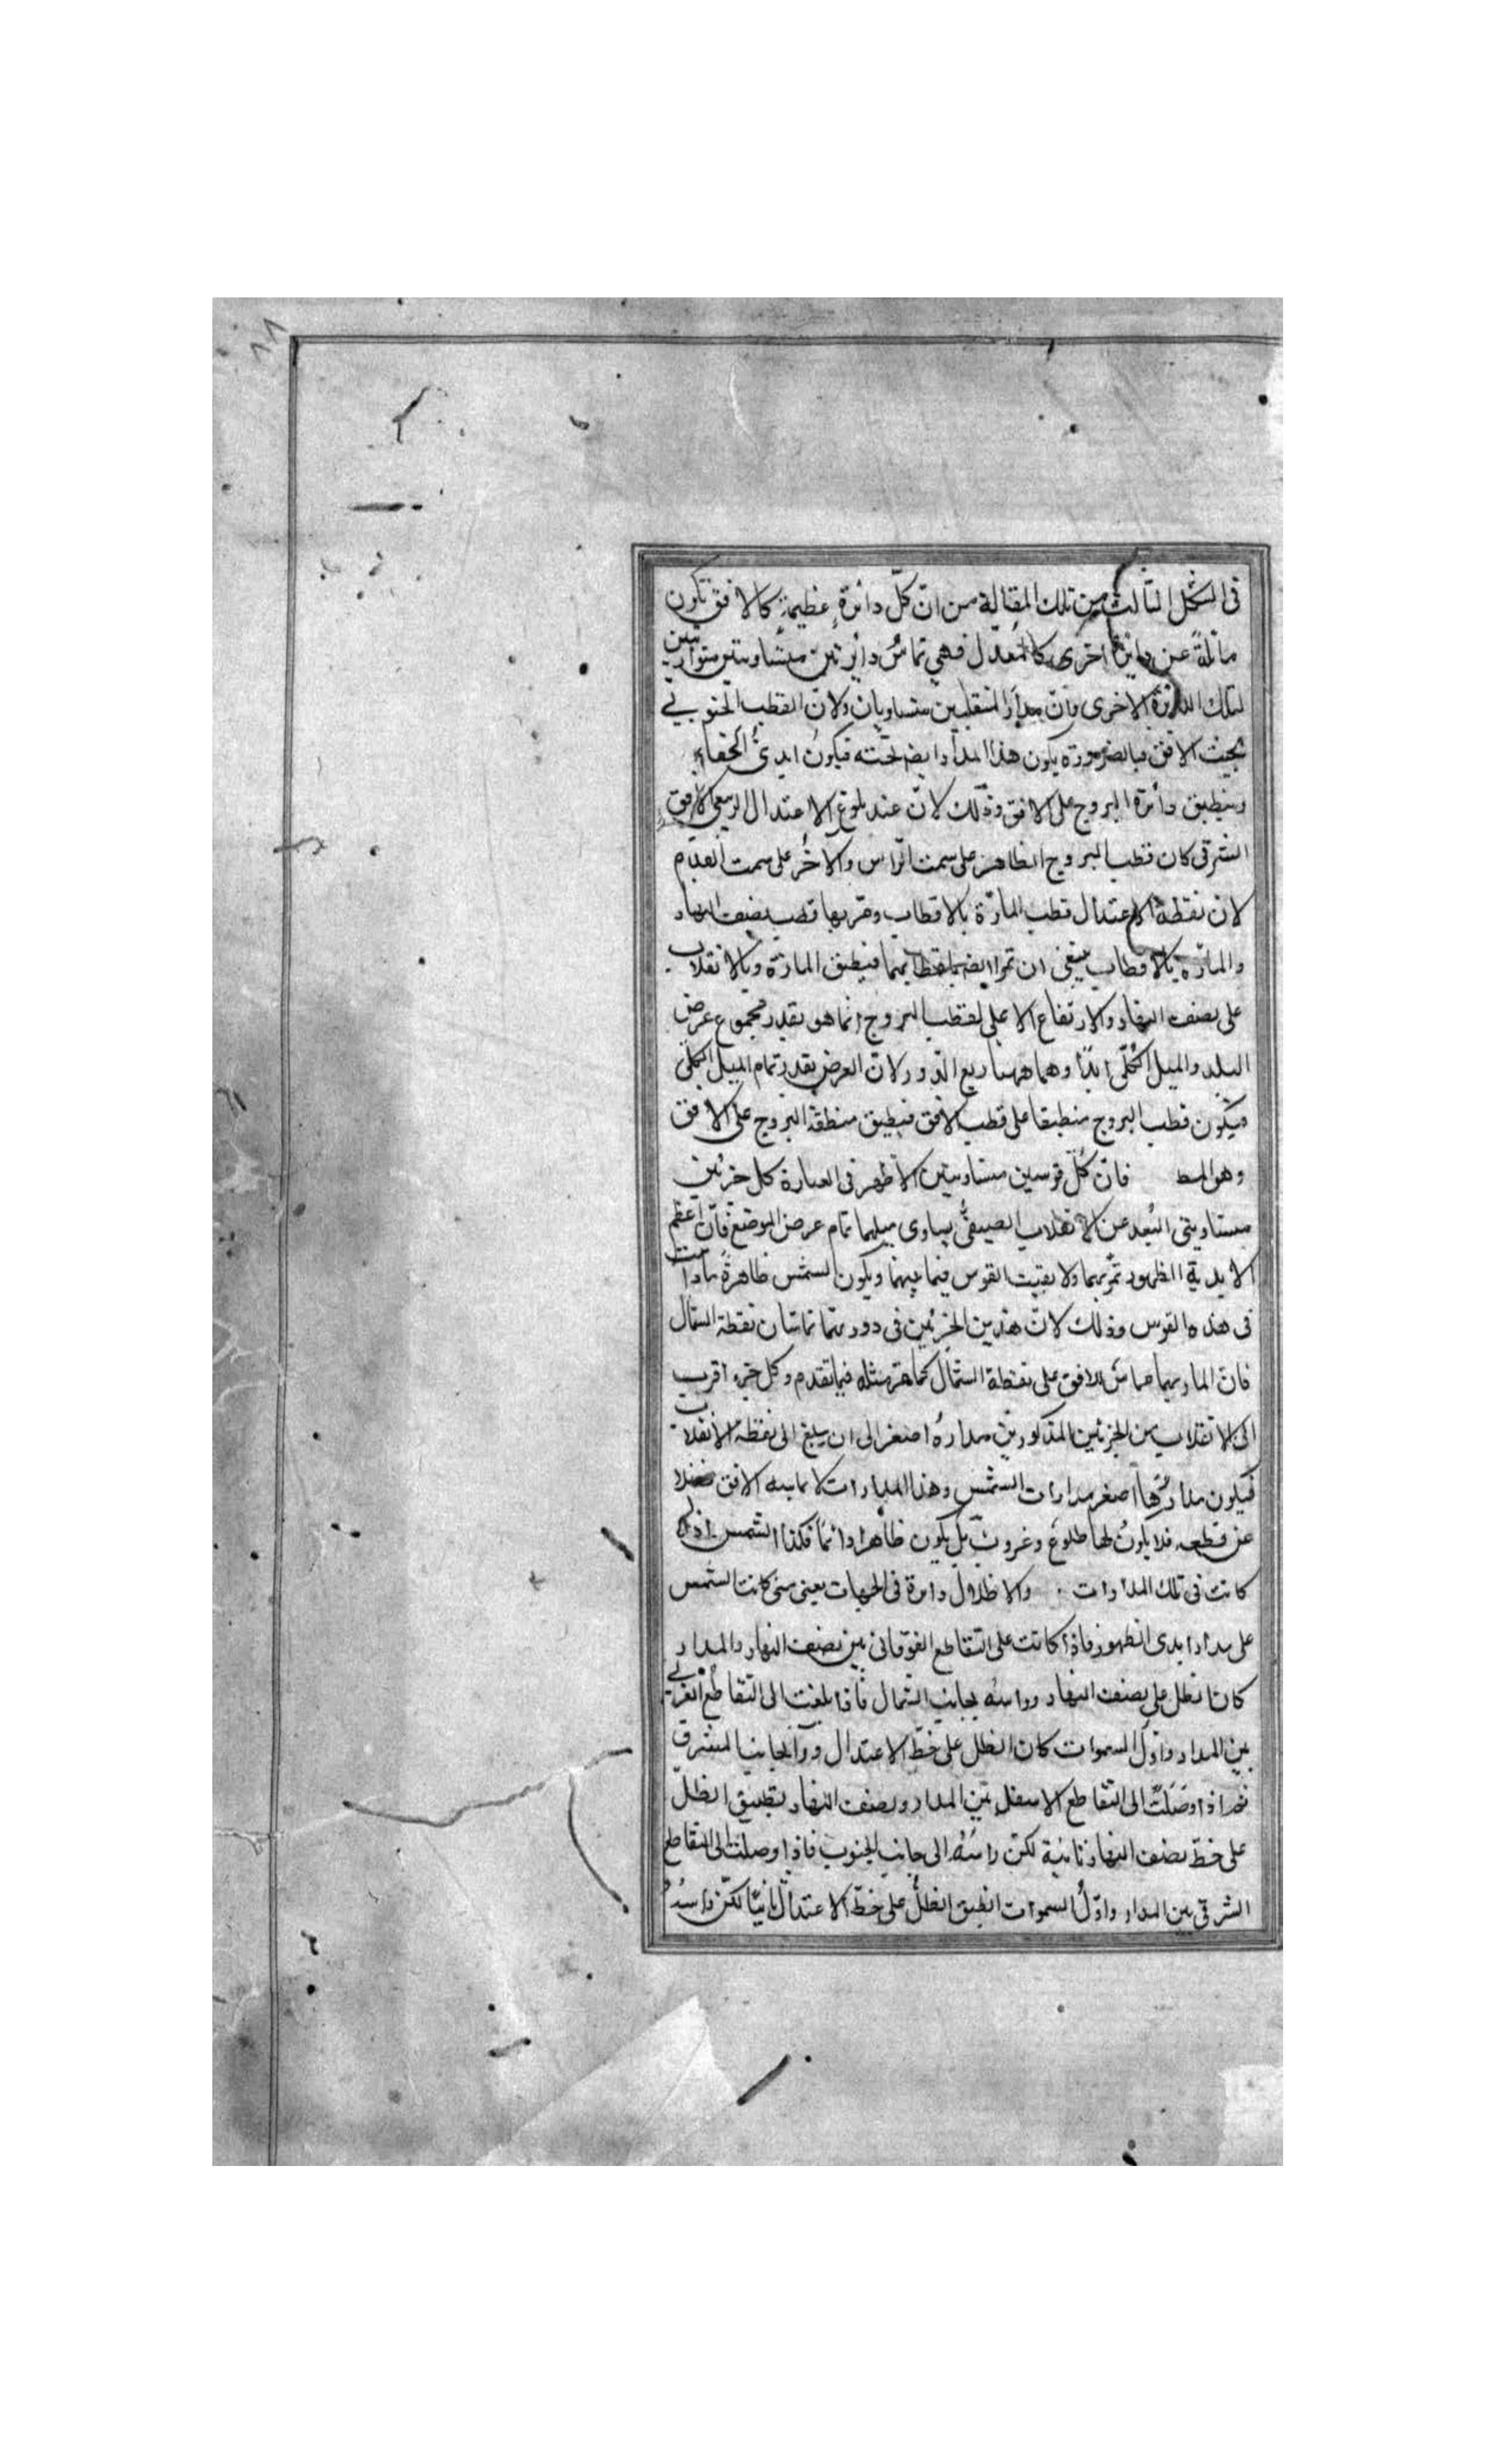 ٨٨
فى الشكل الثالث من تلك المقالة من انّ كلّ دائرةٍ عظيمةٍ كالافق تكون
مائلةً عن دائرة اخرى كالمعدّل فهى تماسُّ دائرتين متساويتين متوازيتين
لتلك الدائرة الاخرى فانّ مدارَا المنقلبين متساويان ولانّ القطب الجنوبى
تحت الافق فبالضرورة يكون هذا المدار ايضا تحته فيكونُ ابدىُّ الخفاءِ
وينطبق دائرة البروج على الافق وذلك لانّ عند بلوغ الاعتدال الربيعى الافق
الشرقى كان قطب البروج الظاهر على سمت الراس والاخر على سمت القدم
لان نقطة الاعتدال قطب المارّة بالاقطاب وقربها قطب نصف النهار
والمارّة بالاقطاب ينبغى ان تمرّا ايضا بقطبيهما فينطبق المارّة وبالانقلاب
على نصف النهار والارتفاع الاعلى لقطب البروج انما هو بقدر مجموع عرض
البلد والميل الكلّى ابدًا وهما ههنا ربع الدور لانّ العرض بقدر تمام الميل الكلّى
فيكون قطب البروج منطبقا على قطب الافق فينطبق منطقة البروج على الافق
وهو المط فانّ كلّ قوسين متساويتين الاظهر فى العبارة كل جزئين
متساويتى البُعد عن الانقلاب الصيفىّ يساوى ميلهما تمام عرض الموضع فانّ اعظم
الابدية الظهور تمرّ بهما ولا بقيت القوس فيما بينهما ويكون الشمس ظاهرةً مادامت
فى هذه القوس وذلك لانّ هذين الجزئين فى دورتهما تماسّان نقطة الشمال
فانّ المار بهما مماسّ للافق على نقطة الشمال كما مرّ مثله فيما تقدم وكل جزء اقرب
الى الانقلاب من الجزئين المذكورين مدارهُ اصغر الى ان يبلغ الى نقطة الانقلاب
فيكون مدارُها اصغر مدارات الشمس وهذا المدارات لا يماسه الافق فضلا
عن قطعه فلا يكونُ لها طلوعٌ وغروبٌ بل يكون ظاهرا دائمًا فكذا الشمس اذا
كانت فى تلك المدارات ۰ والاظلال دائرة فى الجهات يعنى متى كانت الشمس
على مدار ابدى الظهور فاذا كانت على التقاطع الفوقانى بين نصف النهار والمدار
كان الظل على نصف النهار وراسُه بجانب الشمال فاذا بلغت الى التقاطع الغربى
بين المدار واوّل السموات كان الظلّ على خطّ الاعتدال ورأ بجانب المشرق
ثم اذا وصَلَتْ الى التقاطع الاسفل بين المدار ونصف النهار ينطبق الظلّ
على خطّ نصف النهار ثانية لكنّ راسُهُ الى جانب الجنوب فاذا وصلت الى التقاطع
الشرقى بين المدار واوّلُ السموات انطبق الظلُّ على خطّ الاعتدال ثانيًا لكنّ راسُهُ